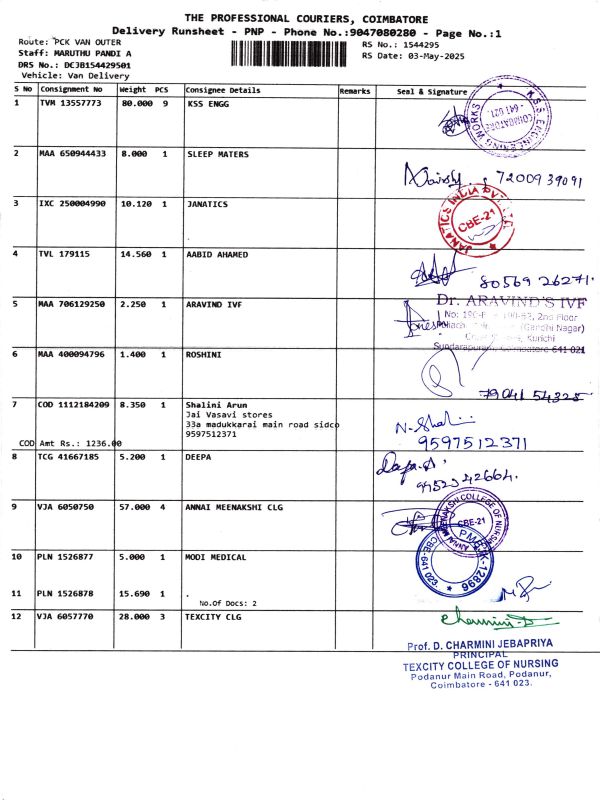 THE PROFESSIONAL COURIERS, COIMBATORE
Delivery Runsheet - PNP - Phone No.:9047080280 - Page No.:1
Route: PCK VAN OUTER
Staff: MARUTHU PANDI A
DRS No.: DCJB154429501
Vehicle: Van Delivery
RS No.: 1544295
RS Date: 03-May-2025
S No Consignment No Weight PCS Consignee Details Remarks Seal & Signature
1 TVM 13557773 80.000 9 KSS ENGG
K.S.S. ENGINEERING WORKS
COIMBATORE
-641 021.
2 MAA 650944433 8.000 1 SLEEP MATERS
7200939091
3 IXC 250004990 10.120 1 JANATICS
JANATICS INDIA PVT. LTD.
CBE-21
4 TVL 179115 14.560 1 AABID AHAMED
80569 26271.
5 MAA 706129250 2.250 1 ARAVIND IVF
Dr. ARAVIND'S IVF
2nd Floor
(Gandhi Nagar)
Kurichi
Sundarapuram, Coimbatore 641 021
6 MAA 400094796 1.400 1 ROSHINI
79041 54325
7 COD 1112184209 8.350 1 Shalini Arun
Jai Vasavi stores
33a madukkarai main road sidco
9597512371
COD Amt Rs.: 1236.00
N. Shalini
9597512371
8 TCG 41667185 5.200 1 DEEPA
Deepa.A
9952342664.
9 VJA 6050750 57.000 4 ANNAI MEENAKSHI CLG
ANNAI MEENAKSHI COLLEGE OF NURSING
CBE-21
10 PLN 1526877 5.000 1 MODI MEDICAL
PMBJK-12896
CBE-641 023.
11 PLN 1526878 15.690 1 .
No.Of Docs: 2
12 VJA 6057770 28.000 3 TEXCITY CLG
Charmini.D
Prof. D. CHARMINI JEBAPRIYA
PRINCIPAL
TEXCITY COLLEGE OF NURSING
Podanur Main Road, Podanur,
Coimbatore - 641 023.